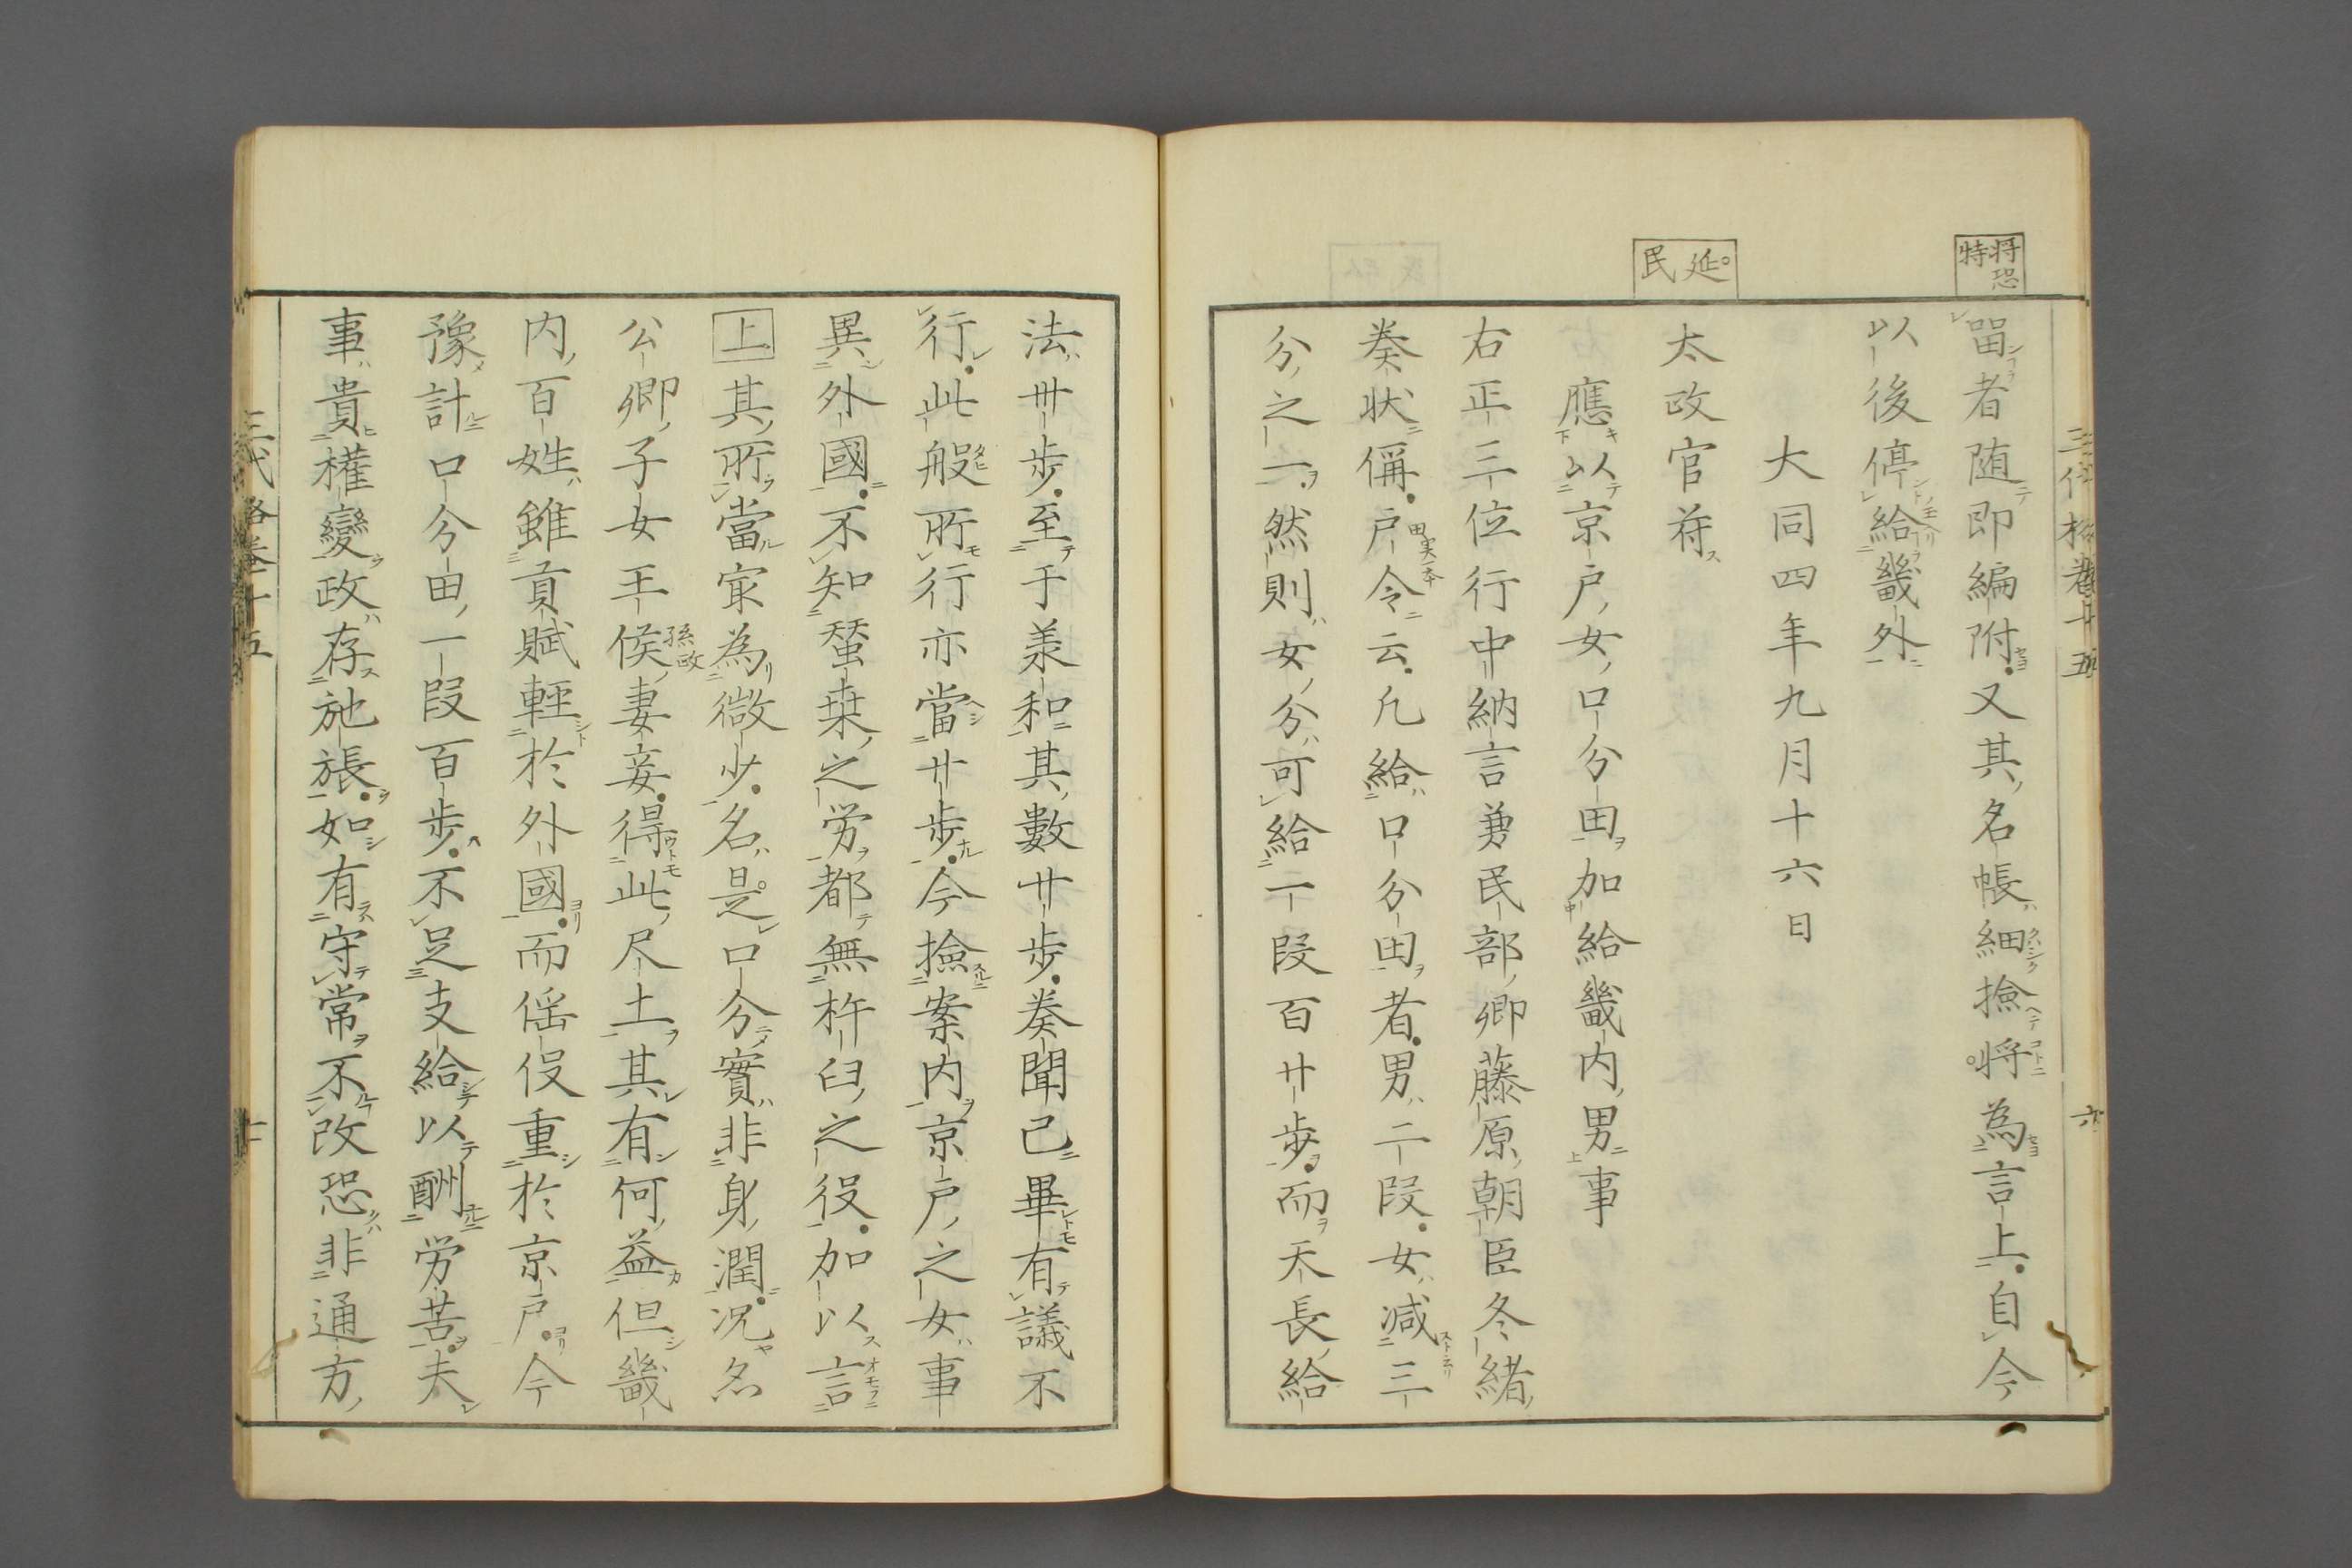 三代格卷十五
六
将恐
特
留者随即編附又其名帳細撿将為言上自今
以後停給畿外
大同四年九月十六日
延
民
太政官符
應以京戸女口分田加給畿内男事
右正三位行中納言兼民部卿藤原朝臣冬緒
奏状偁戸令云凡給口分田者男二段女減三
田実一本
分之一然則女分可給一段百廿歩而天長給
法卅歩至于羕和其數廿歩奏聞已畢有議不
行此般所行亦當廿歩今撿案内京戸之女事
異外國不知蚕桒之労都無杵臼之役加以言
上其所當㝡為微少名是口分實非身潤况名
公卿子女王侯妻妾得此尺土其有何益但畿
孫或
内百姓雖貢賦輕於外國而傜役重於京戸今
豫計口分田一段百歩不足支給以酬労苦夫
事貴權變政存弛張如有守常不改恐非通方
三代格卷十五